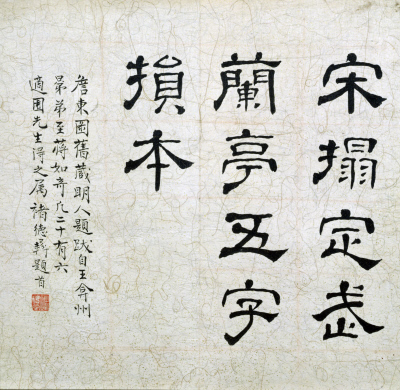 宋搨定武
蘭亭五字
損本
詹東圖舊藏明人題跋自王弇州
昆弟至蔣如奇凡二十有六
適園先生得之屬褚德彝題首